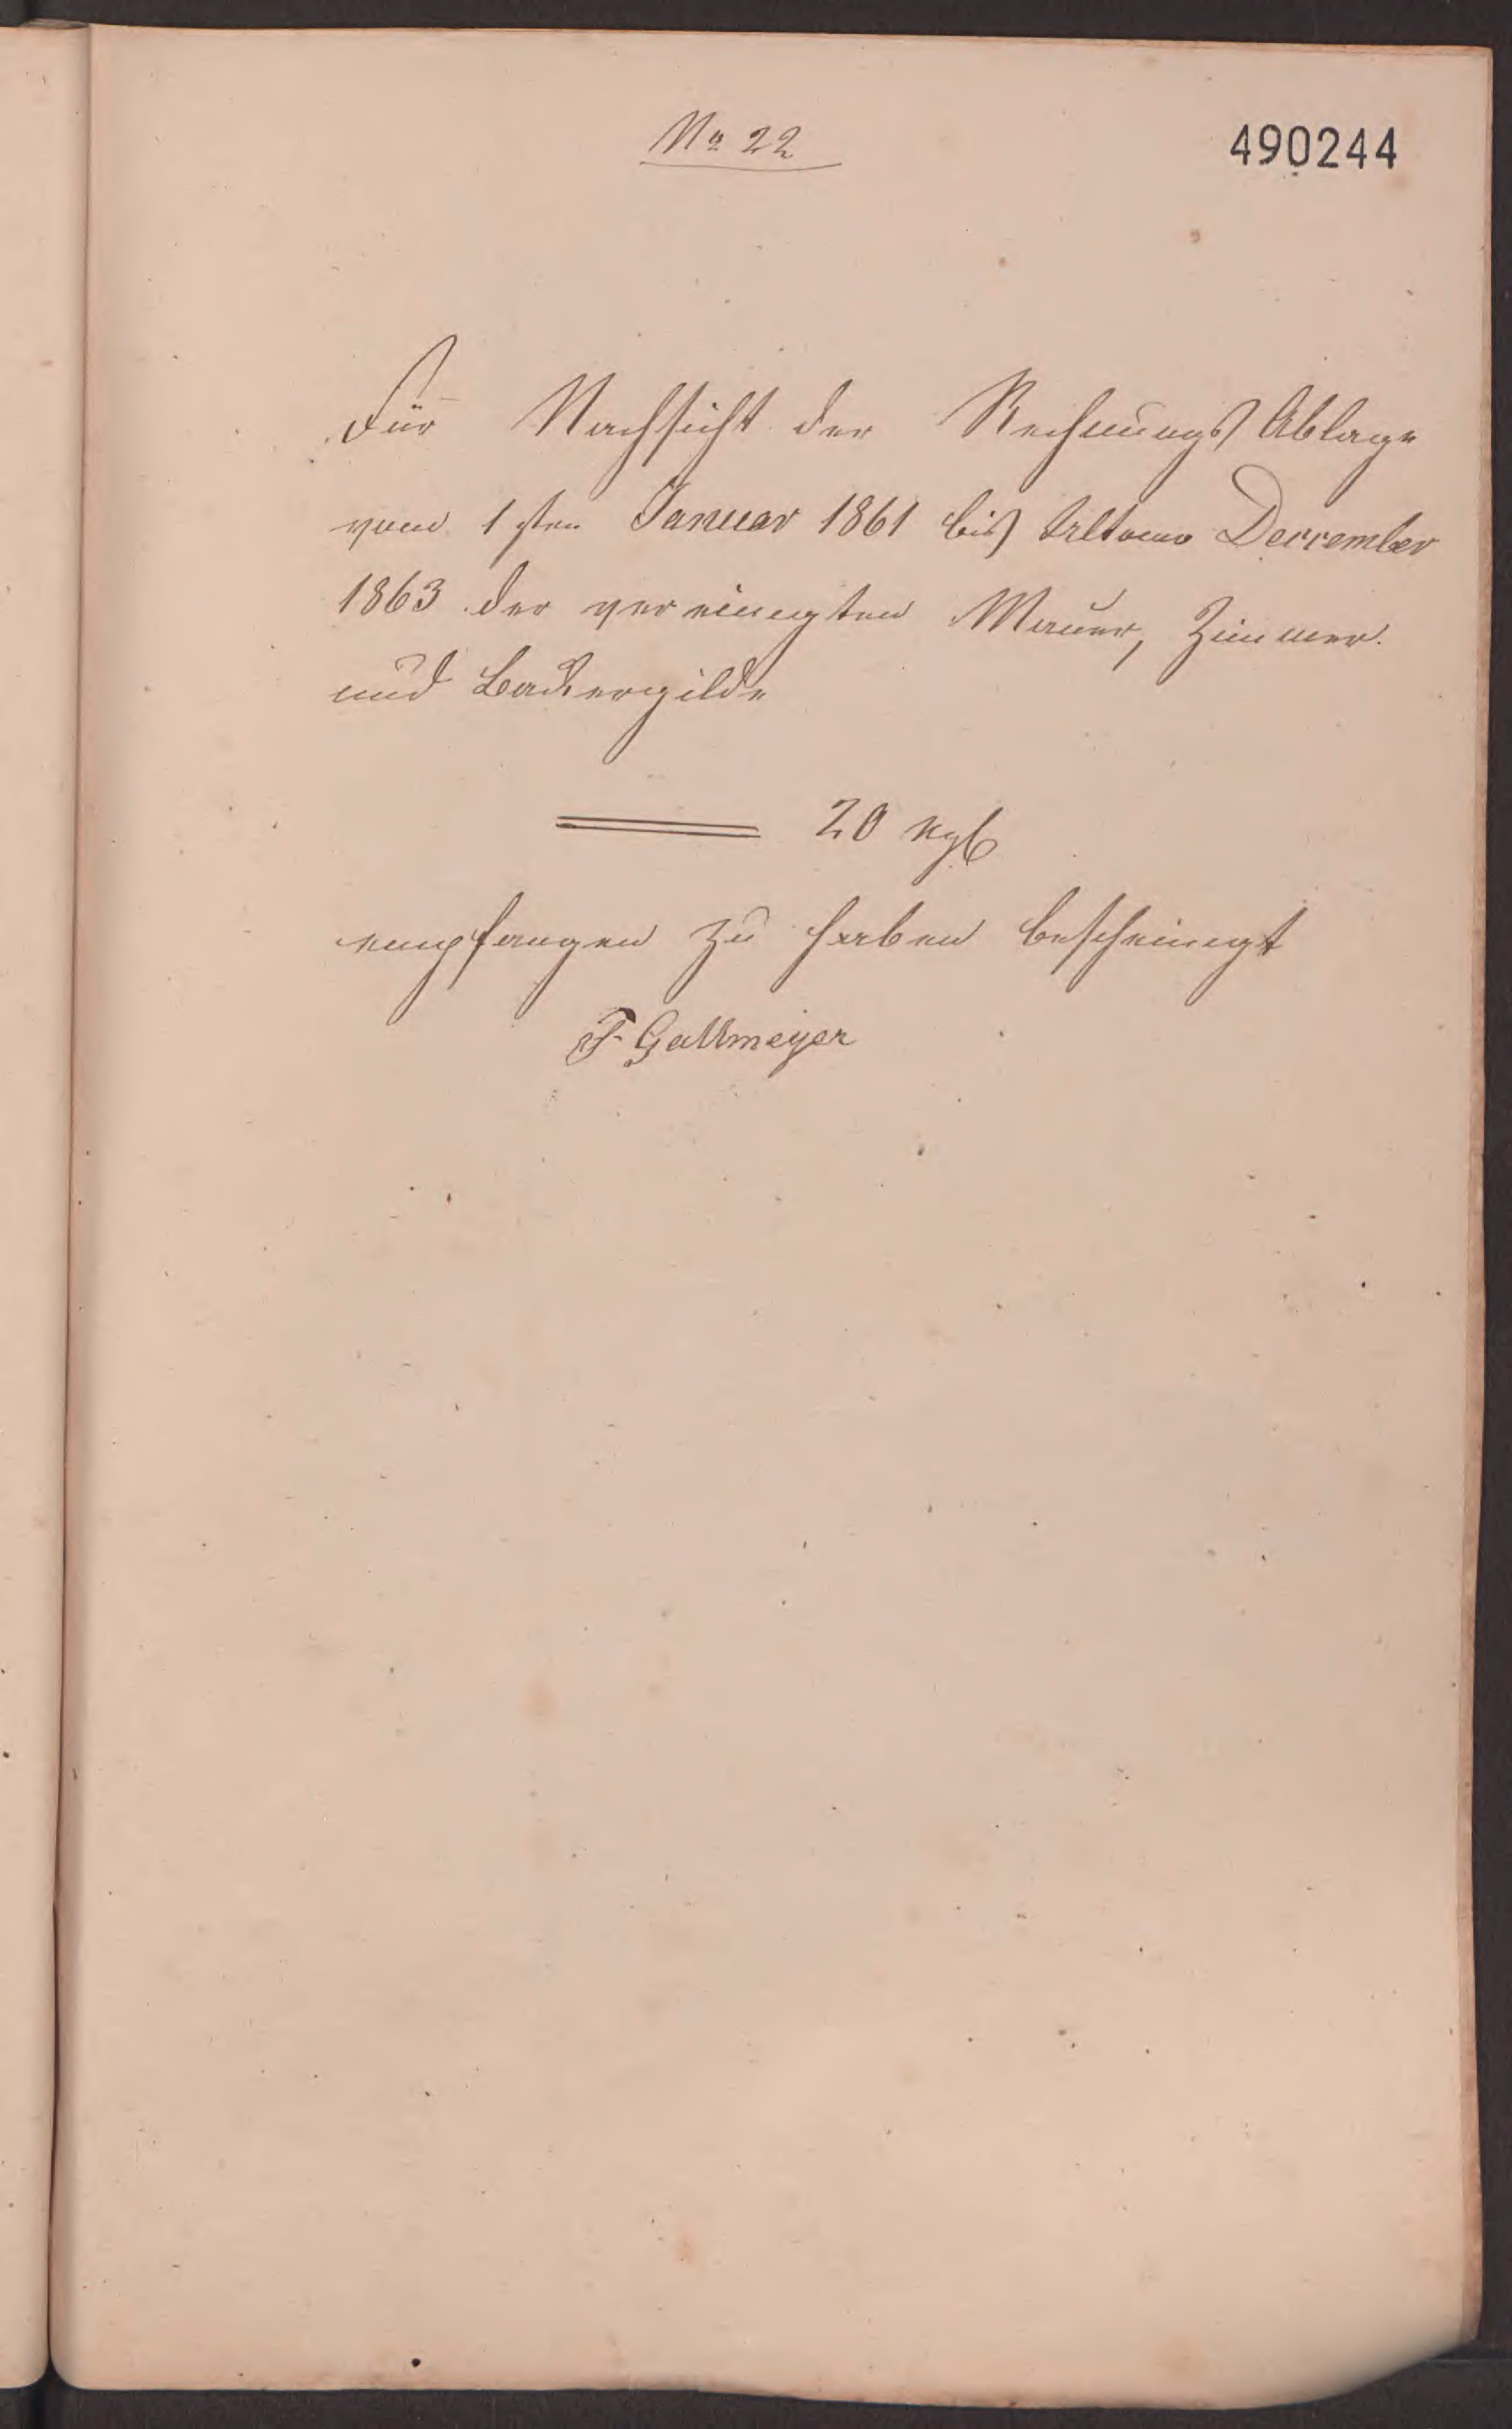 No 22
490244
Für Nachsicht der Rechnungs Ablage
vom 1sten Januar 1861 bis Ultomo Decrember
1863 der vereinigten Mauer, Zimmer
und Backergilde
20 ngl
empfangen zu haben bescheinigt
F. Gallmeyer